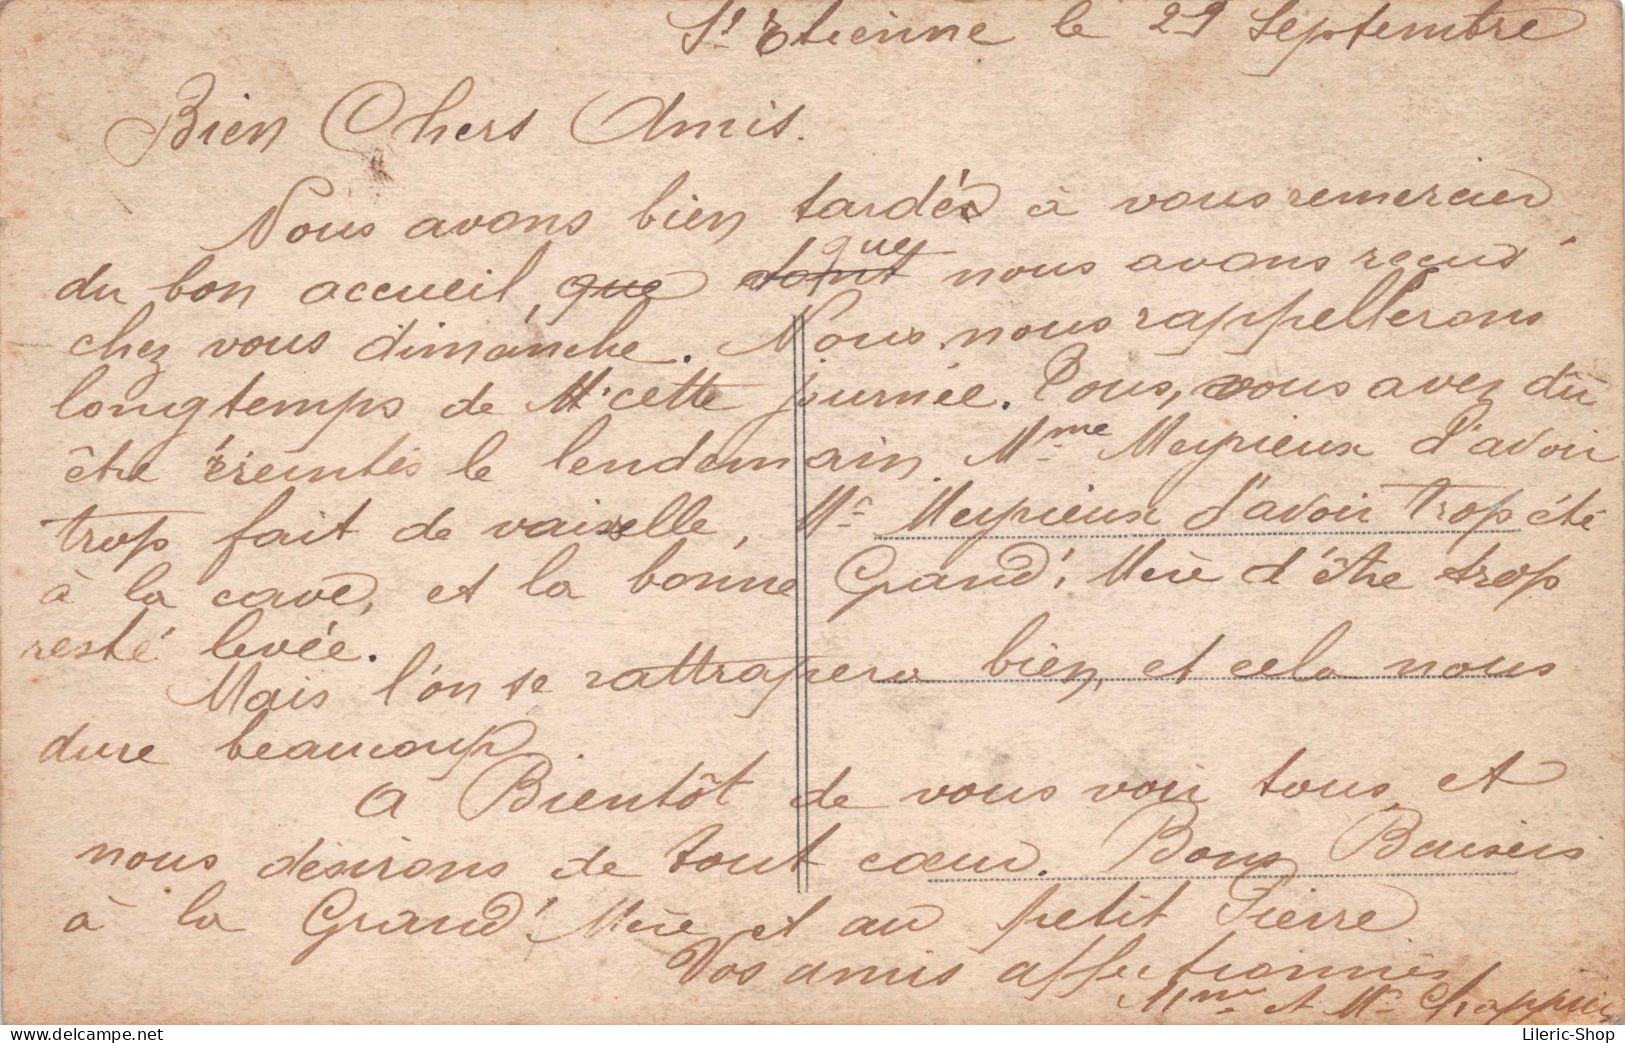 St Etienne le 29 Septembre
Bien Chers Amis.
Nous avons bien tardés à vous remercier
du bon accueil, que dont que nous avons reçus
chez vous dimanche. Nous nous rappellerons
longtemps de cette journée. Tous, vous avez dû
être éreintés le lendemain, Mme Meyrieux d'avoir
trop fait de vaiselle, Mr Meyrieux d'avoir trop été
à la cave, et la bonne Grand' Mère d'être trop
resté levée.
Mais l'on se rattrapera bien, et cela nous
dure beaucoup
A Bientôt de vous voir tous, et
nous désirons de tout cœur. Bons Baisers
à la Grand' Mère et au petit Pierre
Vos amis affectionnés
Mme et Mr Chappuis
Lileric-Shop